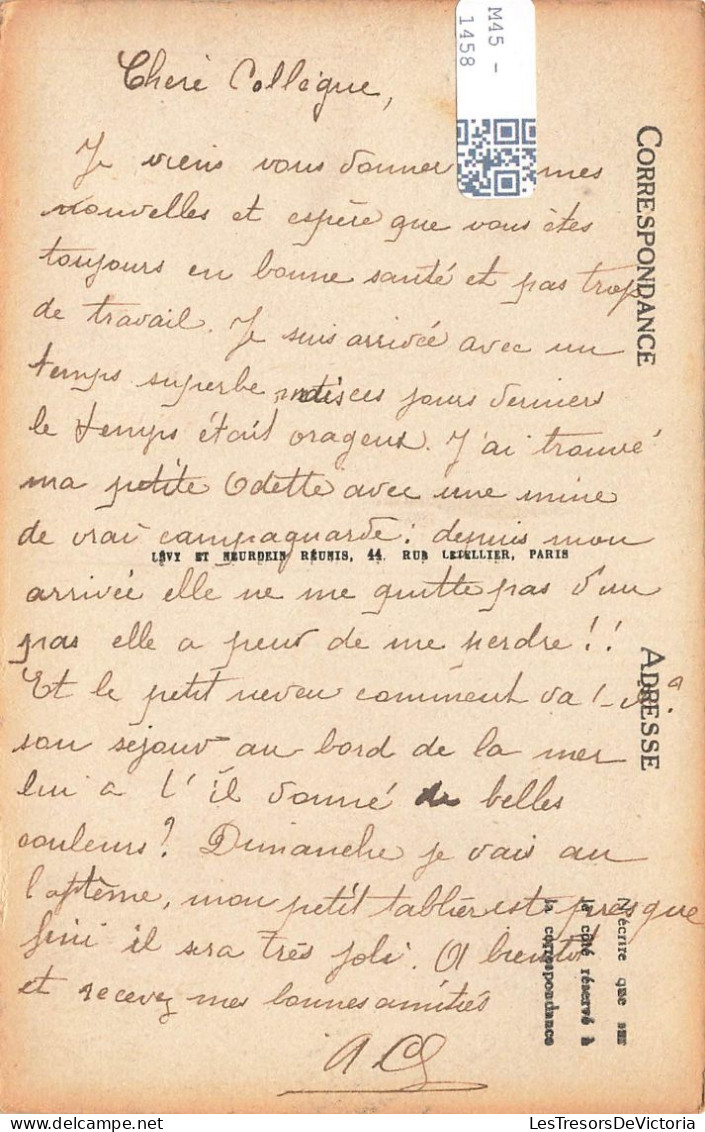 Cheré Collègue,
Je viens vous donner mes
nouvelles et espère que vous êtes
toujours en bonne santé et pas trop
de travail. Je suis arrivée avec un
temps superbe, mais ces jours derniers
le temps était orageux. J'ai trouvé
ma petite Odette avec une mine
de vrai campagnarde; depuis mon
arrivée elle ne me quitte pas d'un
pas elle a peur de me perdre!!
Et le petit neveu comment va t-il?
son sejour au bord de la mer
lui a t'il donné de belles
couleurs? Dimanche je vais au
baptême, mon petit tablier est presque
fini il sera très joli. A bientôt
et recevez mes bonnes amitiés
M45 -
1458
CORRESPONDANCE
ADRESSE
N'écrire que sur
le côté réservé à
la correspondance
LÉVY ET NEURDEIN RÉUNIS, 44, RUE LETELLIER, PARIS
LesTresorsDeVictoria